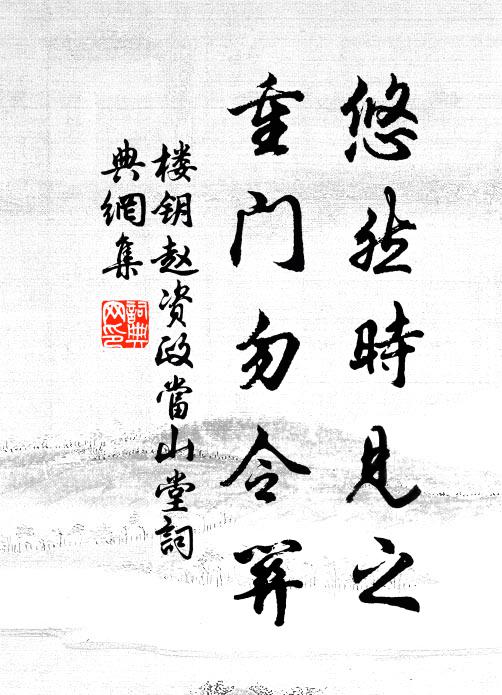 悠然時見之
重门勿令
楼钥赵资政當山堂詞
典網集
詞典
网印